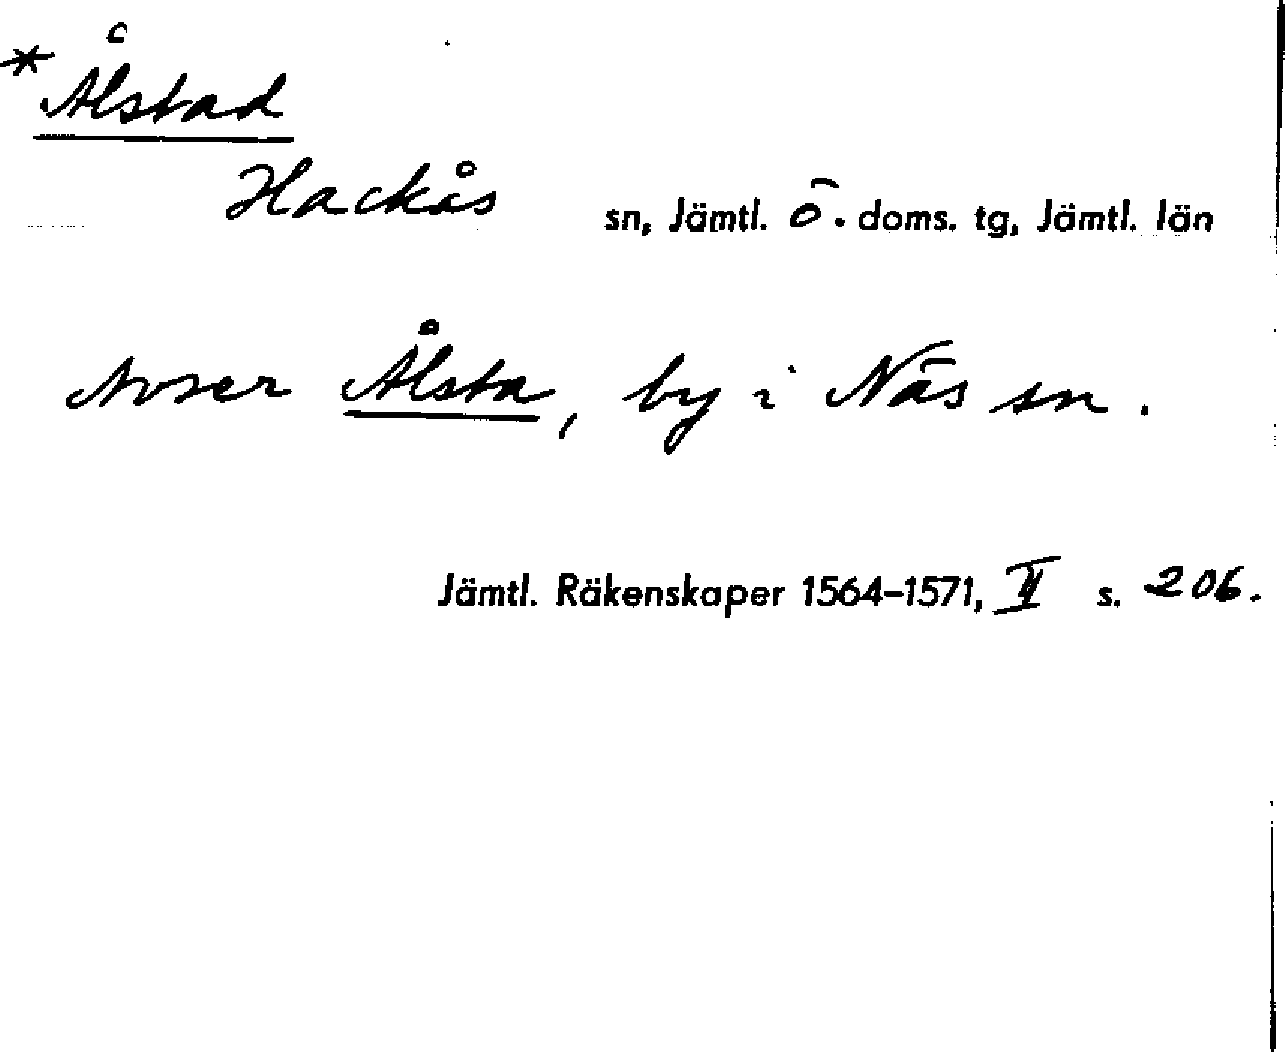 *Ålstad
Hackås sn, Jämtl. ö. doms. tg, Jämtl. län
Avser Ålsta, by i Näs sn.
Jämtl. Räkenskaper 1564–1571, II s. 206.